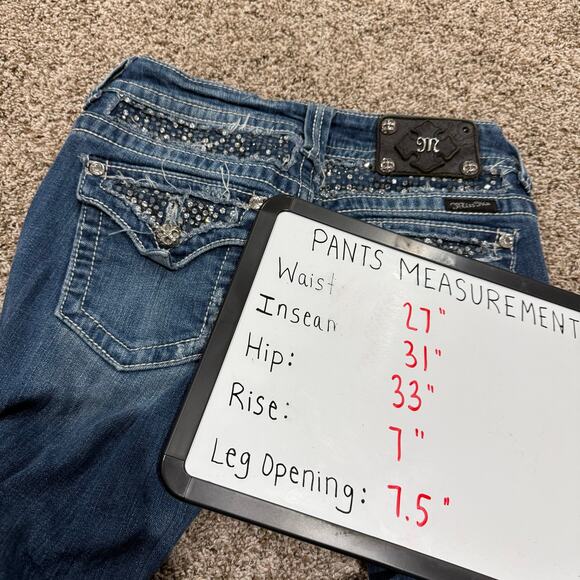 M
Miss Me
PANTS MEASUREMENT
Waist 27"
Inseam 31"
Hip: 33"
Rise: 7"
Leg Opening: 7.5"